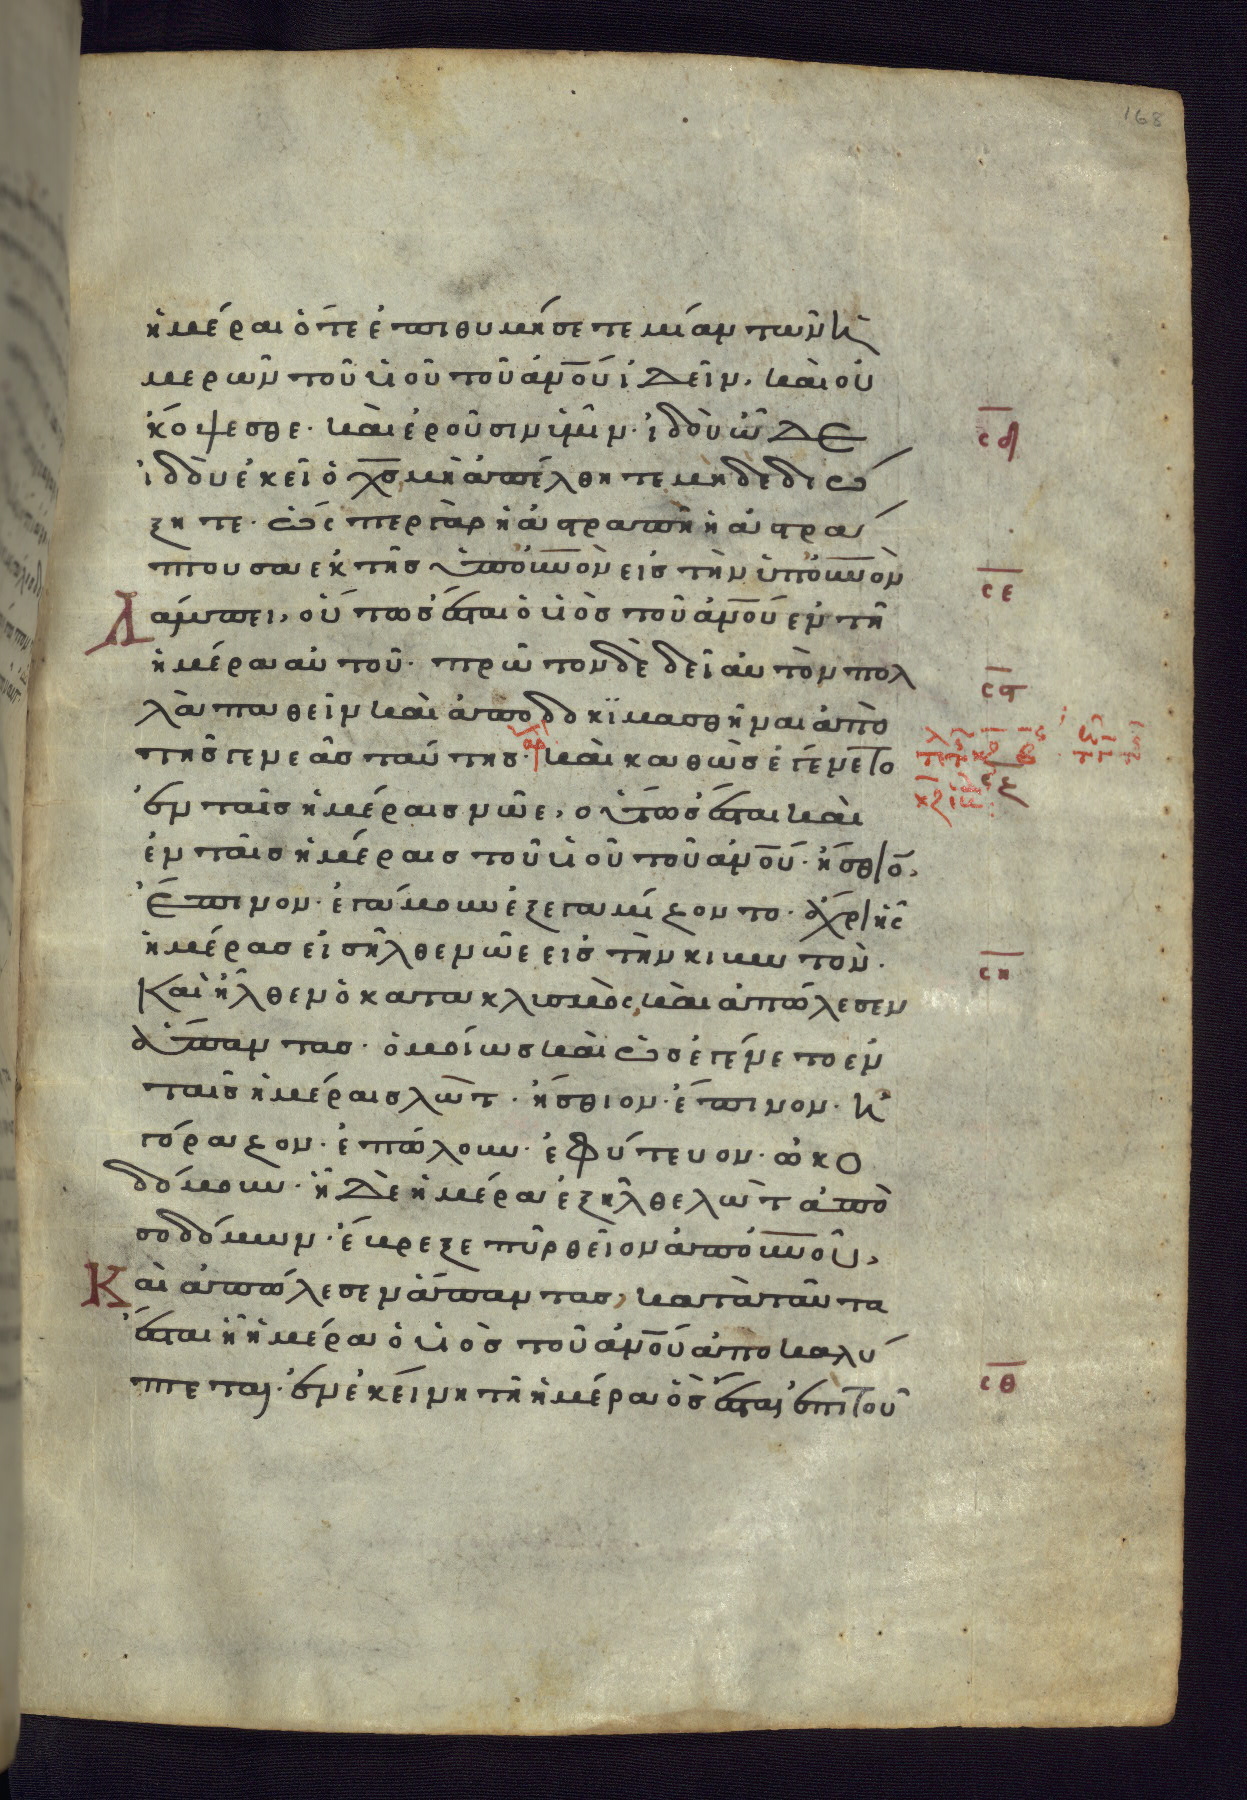 168
ἡμέραι ὅτε ἐπιθυμήσετε μίαν τῶν ἡ
μερῶν τοῦ υἱοῦ τοῦ ἀν̅ο̅υ̅ ἰδεῖν, καὶ οὐ
κόψεσθε· καὶ ἐροῦσιν ὑμῖν· ἰδοὺ ὧδε
σδ
ἰδοὺ ἐκεῖ ὁ χ̅σ̅ μὴ ἀπέλθητε μηδὲ διώ
ξητε· ὥσπερ γὰρ ἡ ἀστραπὴ ἡ ἀστρά
πτουσα ἐκ τῆς ὑπ᾽ ο̅υ̅ν̅ο̅ν εἰς τὴν ὑπ᾽ ο̅υ̅ν̅ο̅ν
σε
λάμπει, οὕτως ἔσται ὁ υἱὸς τοῦ ἀν̅ο̅υ̅ ἐν τῆ
ἡμέρα αὐτοῦ· πρῶτον δὲ δεῖ αὐτὸν πολ
σϛ
λὰ παθεῖν καὶ ἀποδοκιμασθῆναι ἀπὸ
τῆς γενεᾶς ταύτης· ἀρχ καὶ καθὼς ἐγένετο
ἐν ταῖς ἡμέραις νῶε, οὕτως ἔσται καὶ
ἐν ταῖς ἡμέραις τοῦ υἱοῦ τοῦ ἀν̅ο̅υ̅· ἤσθιον,
ἔπινον· ἐγάμουν ἐξεγαμίζοντο· ἄχρι ἧς
ἡμέρας εἰσῆλθε νῶε εἰς τὴν κιβωτόν·
ση
Καὶ ἦλθεν ὁ κατακλυσμὸς, καὶ ἀπώλεσεν
ἅπαντας· ὁμοίως καὶ ὡς ἐγένετο ἐν
ταῖς ἡμέραις λώτ· ἤσθιον· ἔπινον· ἠ
γόραζον· ἐπώλουν· ἐφύτευον· ὠκο
δόμουν· ἧ δὲ ἡμέρα ἐξῆλθε λὼτ ἀπὸ
σοδόμων· ἔβρεξε πῦρ θεῖον ἀπ᾽ ο̅υ̅ν̅ο̅υ̅,
Καὶ ἀπώλεσεν ἅπαντας, κατὰ ταῦτα
ἔσται ἧ ἡμέρα ὁ υἱὸς τοῦ ἀν̅ο̅υ̅ ἀποκαλύ
πτεται· ἐν ἐκείνη τῆ ἡμέρα ὃς ἔσται ἐπὶ τοῦ
σθ